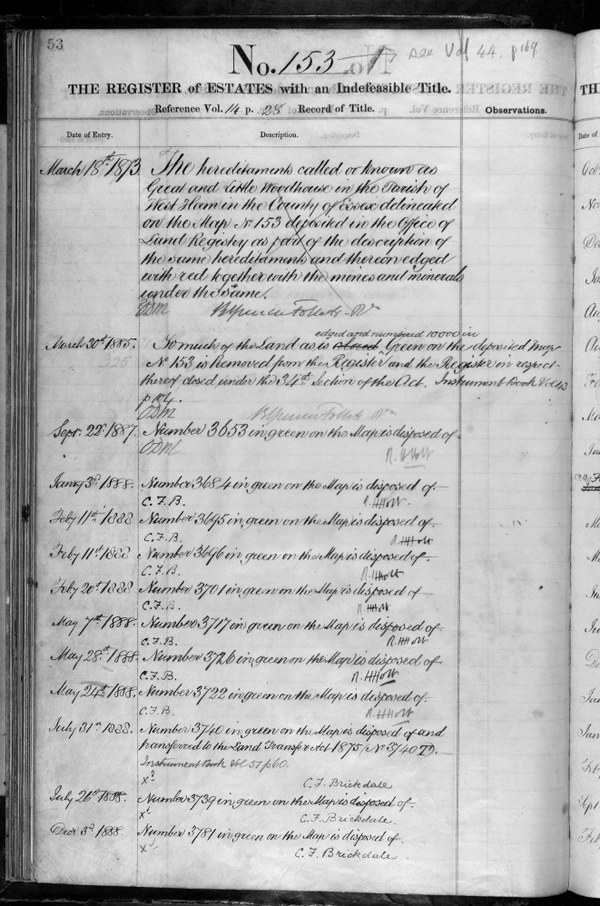 53
No. 153 see Vol 44. p 169
THE REGISTER of ESTATES with an Indefeasible Title.
Reference Vol. 14 p. 28 Record of Title. Observations.
Date of Entry. Description.
March 18th 1873. The hereditaments called or known as
Great and Little Woodhouse in the Parish of
West Ham in the County of Essex delineated
on the Map No 153 deposited in the Office of
Land Registry as part of the description of
the same hereditaments and thereon edged
with red together with the mines and minerals
under the same.
edged and numbered 10000 in
March 30th 1885. So much of the Land as is Green on the deposited Map
No 153 is removed from the Register and the Register in respect
thereof closed under the 34th Section of the Act. Instrument Book Vol 43
Sept. 22d 1887. Number 3653 in green on the Map is disposed of
R. Holt
Janry 3d 1888. Number 3684 in green on the Map is disposed of
C.F.B. R. Holt
Feby 11th 1888 Number 3695 in green on the Map is disposed of
C.F.B. R. Holt
Feby 11th 1888 Number 3696 in green on the Map is disposed of
C.F.B. R. Holt
Feby 20th 1888 Number 3701 in green on the Map is disposed of
C.F.B. R. Holt
May 7th 1888. Number 3717 in green on the Map is disposed of
C.F.B. R. Holt
May 28th 1888. Number 3726 in green on the Map is disposed of
C.F.B. R. Holt
May 24th 1888. Number 3722 in green on the Map is disposed of
C.F.B. R. Holt
July 31st 1888. Number 3740 in green on the Map is disposed of and
transferred to the Land Transfer Act 1875 (No 3740 T).
Instrument Book Vol 57 p 60.
C. F. Brickdale
July 26th 1888. Number 3739 in green on the Map is disposed of.
C. F. Brickdale.
Decr 3d 1888. Number 3781 in green on the Map is disposed of.
C. F. Brickdale.